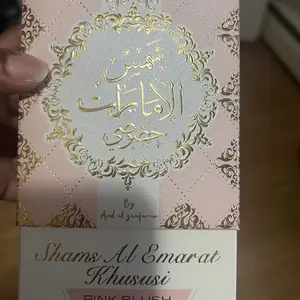 شمس
الإمارات
خصوصي
By
Ard al zaafaran
Shams Al Emarat
Khususi
PINK BLUSH